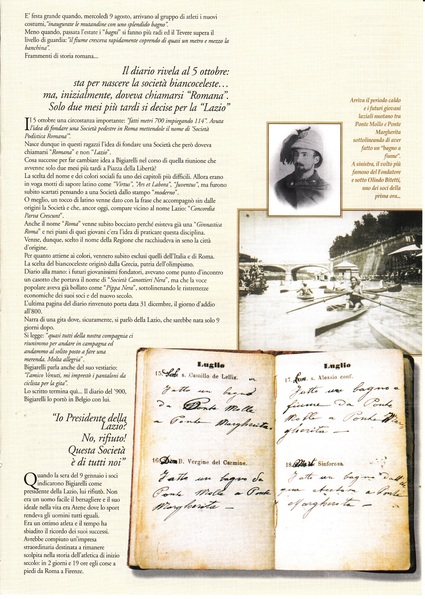 E' festa grande quando, mercoledì 9 agosto, arrivano al gruppo di atleti i nuovi
costumi, "inaugurate le mutandine con uno splendido bagno".
Meno quando, passata l'estate i "bagni" si fanno più radi ed il Tevere supera il
livello di guardia: "il fiume cresceva rapidamente coprendo di quasi un metro e mezzo la
banchina".
Frammenti di storia romana...
Il diario rivela al 5 ottobre:
sta per nascere la società biancoceleste…
ma, inizialmente, doveva chiamarsi "Romana".
Solo due mesi più tardi si decise per la "Lazio"
Il 5 ottobre una circostanza importante: "fatti metri 700 impiegando 114". Avuta
l'idea di fondare una Società pedestre in Roma mettendole il nome di 'Società
Podistica Romana'".
Nasce dunque in questi ragazzi l'idea di fondare una Società che però doveva
chiamarsi "Romana" e non "Lazio".
Cosa successe per far cambiare idea a Bigiarelli nel corso di quella riunione che
avvenne solo due mesi più tardi a Piazza della Libertà?
La scelta del nome e dei colori sociali fu uno dei capitoli più difficili. Allora erano
in voga motti di sapore latino come "Virtus", "Ars et Labora", "Juventus", ma furono
subito scartati pensando a una Società dallo stampo "moderno".
O meglio, un tocco di latino venne dato con la frase che accompagnò sin dalle
origini la Società e che, ancor oggi, compare vicino al nome Lazio: "Concordia
Parva Crescunt".
Anche il nome "Roma" venne subito bocciato perché esisteva già una "Ginnastica
Roma" e nei piani di quei giovani c'era l'idea di praticare questa disciplina.
Venne, dunque, scelto il nome della Regione che racchiudeva in seno la città
d'origine.
Per quanto attiene ai colori, vennero subito esclusi quelli dell'Italia e di Roma.
La scelta del biancoceleste originò dalla Grecia, patria dell'olimpismo.
Diario alla mano: i futuri giovanissimi fondatori, avevano come punto d'incontro
un casotto che portava il nome di "Società Canottieri Nova", ma che la voce
popolare aveva già bollato come "Pippa Nera", sottolineando le ristrettezze
economiche dei suoi soci e del nuovo secolo.
L'ultima pagina del diario rinvenuto porta data 31 dicembre, il giorno d'addio
all'800.
Narra di una gita dove, sicuramente, si parlò della Lazio, che sarebbe nata solo 9
giorni dopo.
Si legge: "quasi tutti della nostra compagnia ci
riunimmo per andare in campagna ed
andammo al solito posto a fare una
merenda. Molta allegria".
Bigiarelli parla anche del suo vestiario:
"l'amico Venuti, mi imprestò i pantaloni da
ciclista per la gita".
Lo scritto termina qui... Il diario del '900,
Bigiarelli lo portò in Belgio con lui.
"Io Presidente della
Lazio?
No, rifiuto!
Questa Società
è di tutti noi"
Quando la sera del 9 gennaio i soci
indicarono Bigiarelli come
presidente della Lazio, lui rifiutò. Non
era un uomo facile il bersagliere e il suo
ideale nella vita era Atene dove lo sport
rendeva gli uomini tutti eguali.
Era un ottimo atleta e il tempo ha
sbiadito il ricordo dei suoi successi.
Avrebbe compiuto un'impresa
straordinaria destinata a rimanere
scolpita nella storia dell'atletica di inizio
secolo: in 2 giorni e 19 ore egli corse a
piedi da Roma a Firenze.
Arriva il periodo caldo
e i futuri giovani
laziali nuotano tra
Ponte Molle e Ponte
Margherita
sottolineando di aver
fatto un "bagno a
fiume".
A sinistra, il volto più
famoso del Fondatore
e sotto Olindo Bitetti,
uno dei soci della
prima ora...
Luglio
15. Sab s. Camilla de Lellis.
Fatto un bagno
da Ponte Molle
a Ponte Margherita.
16. Dom B. Vergine del Carmine.
Fatto un bagno da
Ponte Molle a Ponte
Margherita
Luglio
17. Lun s. Alessio conf.
Fatto un bagno a
fiume da Ponte
Molle a Ponte Margherita
18. Mart s. Sinforosa.
Fatto un bagno
a Ponte
Margherita